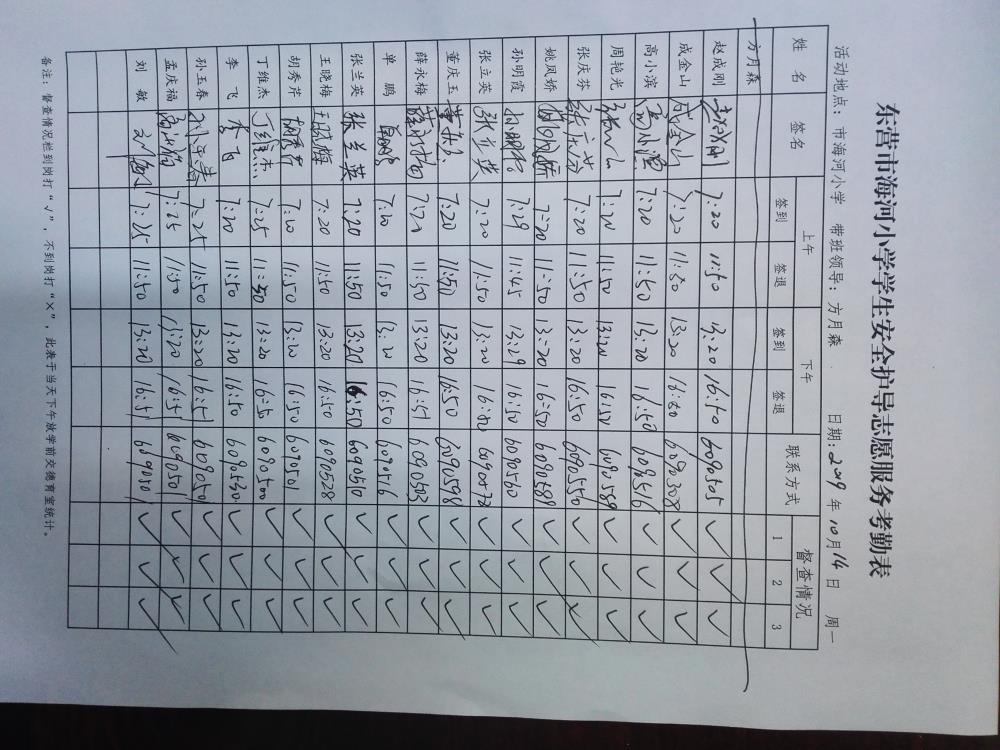 东营市海河小学学生安全护导志愿服务考勤表
活动地点：市海河小学 带班领导：方月森 日期：2019年10月14日 周一
姓名 签名 上午 下午 联系方式 督查情况
签到 签退 签到 签退 1 2 3
方月森
赵成刚 7:20 11:50 13:20 16:50 6090505 ✓ ✓ ✓
成金山 成金山 7:20 11:50 13:20 16:50 6090308 ✓ ✓ ✓
高小滨 高小滨 7:20 11:50 13:20 16:50 6090516 ✓ ✓ ✓
周艳光 7:20 11:50 13:20 16:50 6090589 ✓ ✓ ✓
张庆芬 张庆芬 7:20 11:50 13:20 16:50 6090550 ✓ ✓ ✓
姚凤娇 7:20 11:50 13:20 16:50 6090589 ✓ ✓ ✓
孙明霞 孙明霞 7:29 11:45 13:29 16:50 6090560 ✓ ✓ ✓
张立英 张立英 7:20 11:50 13:20 16:50 6090572 ✓ ✓ ✓
董庆玉 7:20 11:50 13:20 16:50 6090598 ✓ ✓ ✓
薛永梅 7:22 11:50 13:20 16:51 6090503 ✓ ✓ ✓
单鹏 单鹏 7:20 11:50 13:20 16:50 6090516 ✓ ✓ ✓
张兰英 张兰英 7:20 11:50 13:20 16:50 6090510 ✓ ✓ ✓
王晓梅 王晓梅 7:20 11:50 13:20 16:50 6090528 ✓ ✓ ✓
胡秀芹 胡秀芹 7:20 11:50 13:20 16:50 6090501 ✓ ✓ ✓
丁维杰 丁维杰 7:25 11:50 13:20 16:50 6090500 ✓ ✓ ✓
李飞 李飞 7:20 11:50 13:20 16:50 6090530 ✓ ✓ ✓
孙玉春 孙玉春 7:25 11:50 13:20 16:51 6090501 ✓ ✓ ✓
孟庆福 7:25 11:50 13:20 16:51 6090501 ✓ ✓ ✓
刘敏 7:25 11:50 13:20 16:51 6090501 ✓ ✓ ✓
备注：督查情况栏到岗打“√”，不到岗打“×”，此表于当天下午放学前交德育室统计。